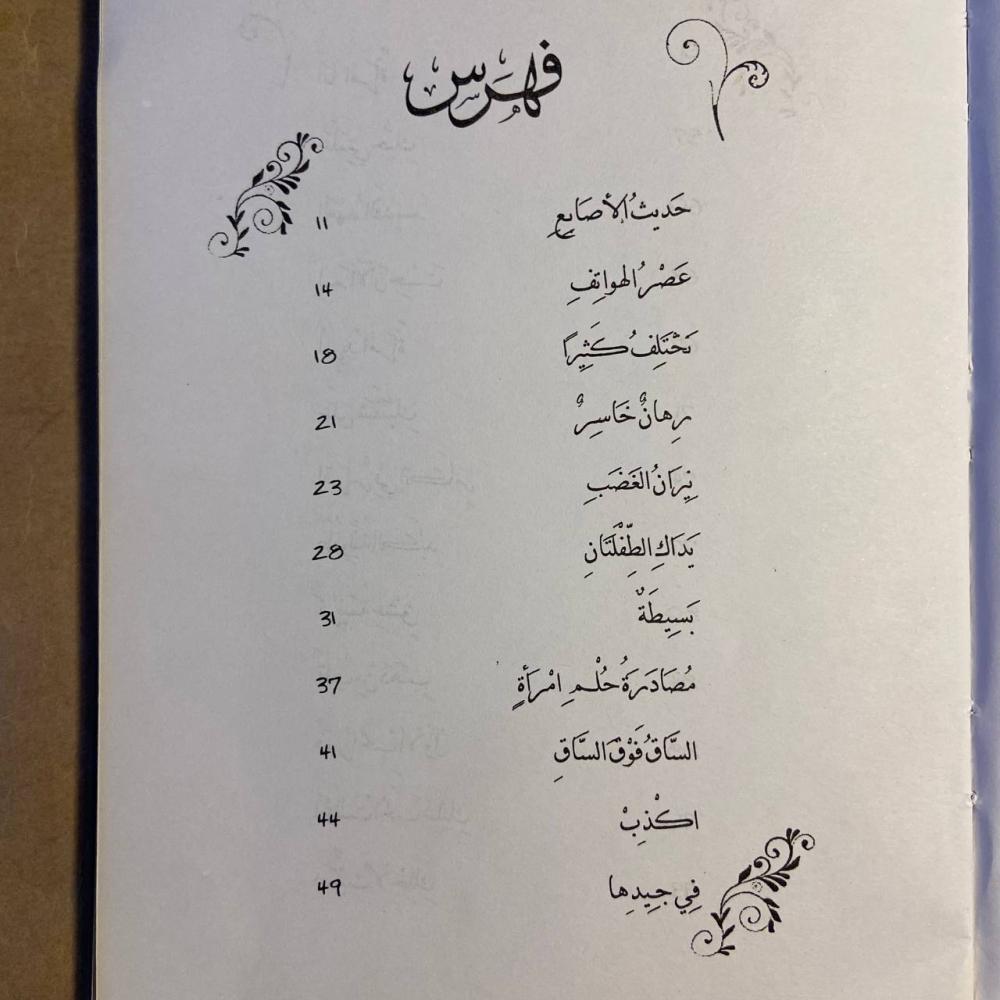 فهرس
حَديثُ الأصَابِعِ 11
عَصْرُ الهواتِفِ 14
تَخْتَلِفُ كَثِيرًا 18
رِهانٌ خَاسِرٌ 21
نِيرَانُ الغَضَبِ 23
يَدَاكِ الطِّفْلَتَانِ 28
بَسِيطَةٌ 31
مُصَادَرَةُ حُلْمِ امْرَأَةٍ 37
السَّاقُ فَوْقَ السَّاقِ 41
اكْذِبْ 44
فِي جِيدِها 49